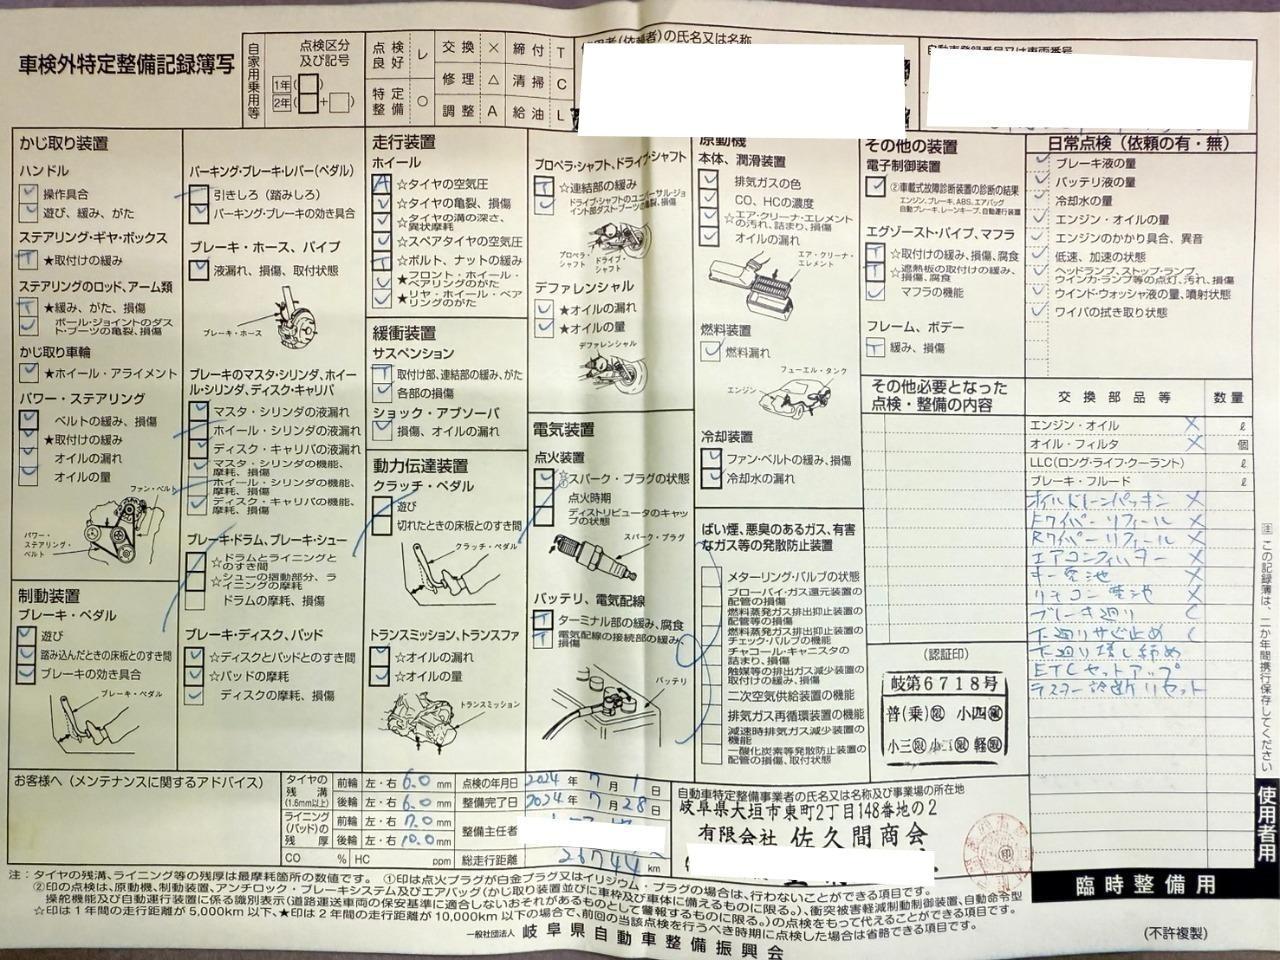 車検外特定整備記録簿写
自家用乗用等
点検区分及び記号
1年
2年 +
点検良好 レ
特定整備 ○
交換 ×
修理 △
調整 A
締付 T
清掃 C
給油 L
(依頼者)の氏名又は名称
かじ取り装置
ハンドル
操作具合
遊び、緩み、がた
ステアリング・ギヤ・ボックス
★取付けの緩み
ステアリングのロッド、アーム類
★緩み、がた、損傷
ボール・ジョイントのダスト・ブーツの亀裂、損傷
かじ取り車輪
★ホイール・アライメント
パワー・ステアリング
ベルトの緩み、損傷
★取付けの緩み
オイルの漏れ
オイルの量
ファン・ベルト
パワー・ステアリング・ベルト
制動装置
ブレーキ・ペダル
遊び
踏み込んだときの床板とのすき間
ブレーキの効き具合
ブレーキ・ペダル
パーキング・ブレーキ・レバー(ペダル)
引きしろ(踏みしろ)
パーキング・ブレーキの効き具合
ブレーキ・ホース、パイプ
液漏れ、損傷、取付状態
ブレーキ・ホース
ブレーキのマスタ・シリンダ、ホイール・シリンダ、ディスク・キャリパ
マスタ・シリンダの液漏れ
ホイール・シリンダの液漏れ
ディスク・キャリパの液漏れ
マスタ・シリンダの機能、摩耗、損傷
ホイール・シリンダの機能、摩耗、損傷
ディスク・キャリパの機能、摩耗、損傷
ブレーキ・ドラム、ブレーキ・シュー
☆ドラムとライニングとのすき間
☆シューの摺動部分、ライニングの摩耗
ドラムの摩耗、損傷
ブレーキ・ディスク、パッド
☆ディスクとパッドとのすき間
☆パッドの摩耗
ディスクの摩耗、損傷
走行装置
ホイール
A ☆タイヤの空気圧
☆タイヤの亀裂、損傷
☆タイヤの溝の深さ、異状摩耗
☆スペアタイヤの空気圧
☆ボルト、ナットの緩み
★フロント・ホイール・ベアリングのがた
★リヤ・ホイール・ベアリングのがた
緩衝装置
サスペンション
取付け部、連結部の緩み、がた
各部の損傷
ショック・アブソーバ
損傷、オイルの漏れ
動力伝達装置
クラッチ・ペダル
遊び
切れたときの床板とのすき間
クラッチ・ペダル
トランスミッション、トランスファ
☆オイルの漏れ
☆オイルの量
トランスミッション
プロペラ・シャフト、ドライブ・シャフト
☆連結部の緩み
ドライブ・シャフトのユニバーサル・ジョイント部ダスト・ブーツの亀裂、損傷
プロペラ・シャフト
ドライブ・シャフト
デファレンシャル
★オイルの漏れ
★オイルの量
デファレンシャル
電気装置
点火装置
☆①スパーク・プラグの状態
点火時期
ディストリビュータのキャップの状態
スパーク・プラグ
バッテリ、電気配線
ターミナル部の緩み、腐食
電気配線の接続部の緩み、損傷
バッテリ
原動機
本体、潤滑装置
排気ガスの色
CO、HCの濃度
☆エア・クリーナ・エレメントの汚れ、詰まり、損傷
オイルの漏れ
エア・クリーナ・エレメント
燃料装置
燃料漏れ
フューエル・タンク
エンジン
冷却装置
ファン・ベルトの緩み、損傷
冷却水の漏れ
ばい煙、悪臭のあるガス、有害なガス等の発散防止装置
メターリング・バルブの状態
ブローバイ・ガス還元装置の配管の損傷
燃料蒸発ガス排出抑止装置の配管等の損傷
燃料蒸発ガス排出抑止装置のチェック・バルブの機能
チャコール・キャニスタの詰まり、損傷
触媒等の排出ガス減少装置の取付けの緩み、損傷
二次空気供給装置の機能
排気ガス再循環装置の機能
減速時排気ガス減少装置の機能
一酸化炭素等発散防止装置の配管の損傷、取付状態
その他の装置
電子制御装置
②車載式故障診断装置の診断の結果
エンジン、ブレーキ、ABS、エアバッグ
自動ブレーキ、レーンキープ、自動運行装置
エグゾースト・パイプ、マフラ
☆取付けの緩み、損傷、腐食
☆遮熱板の取付けの緩み、損傷、腐食
マフラの機能
フレーム、ボデー
緩み、損傷
その他必要となった点検・整備の内容
(認証印)
岐第6718号
日常点検(依頼の有・無)
ブレーキ液の量
バッテリ液の量
冷却水の量
エンジン・オイルの量
エンジンのかかり具合、異音
低速、加速の状態
ヘッドランプ、ストップ・ランプ、ウインカ・ランプ等の点灯、汚れ、損傷
ウインド・ウォッシャ液の量、噴射状態
ワイパの拭き取り状態
交換部品等 数量
エンジン・オイル × ℓ
オイル・フィルタ × 個
LLC(ロング・ライフ・クーラント) ℓ
ブレーキ・フルード ℓ
オイルドレーンパッキン ×
Fワイパーリフィール ×
Rワイパーリフィール ×
エアコンフィルター ×
キー電池 ×
リモコン電池 ×
ブレーキ廻り C
下廻りサビ止め C
下廻り増し締め
ETCセットアップ
テスター診断リセット
お客様へ(メンテナンスに関するアドバイス)
タイヤの残溝(1.6mm以上) 前輪 左・右 6.0 mm
後輪 左・右 6.0 mm
ライニング(パッド)の残厚 前輪 左・右 7.0 mm
後輪 左・右 10.0 mm
CO % HC ppm
点検の年月日 2024年7月1日
整備完了日 2024年7月28日
整備主任者
総走行距離 26744 km
自動車特定整備事業者の氏名又は名称及び事業場の所在地
岐阜県大垣市東町2丁目148番地の2
有限会社 佐久間商会
㊟この記録簿は、二か年間携行保存してください
使用者用
臨時整備用
注:タイヤの残溝、ライニング等の残厚は最摩耗箇所の数値です。 ①印は点火プラグが白金プラグ又はイリジウム・プラグの場合は、行わないことができる項目です。
②印の点検は、原動機、制動装置、アンチロック・ブレーキシステム及びエアバッグ(かじ取り装置並びに車枠及び車体に備えるものに限る。)、衝突被害軽減制動制御装置、自動命令型
操舵機能及び自動運行装置に係る識別表示(道路運送車両の保安基準に適合しないおそれがあるものとして警報するものに限る。)の点検をもって代えることができる項目です。
☆印は1年間の走行距離が5,000km以下、★印は2年間の走行距離が10,000km以下の場合で、前回の当該点検を行うべき時期に点検した場合は省略できる項目です。
一般社団法人 岐阜県自動車整備振興会
(不許複製)